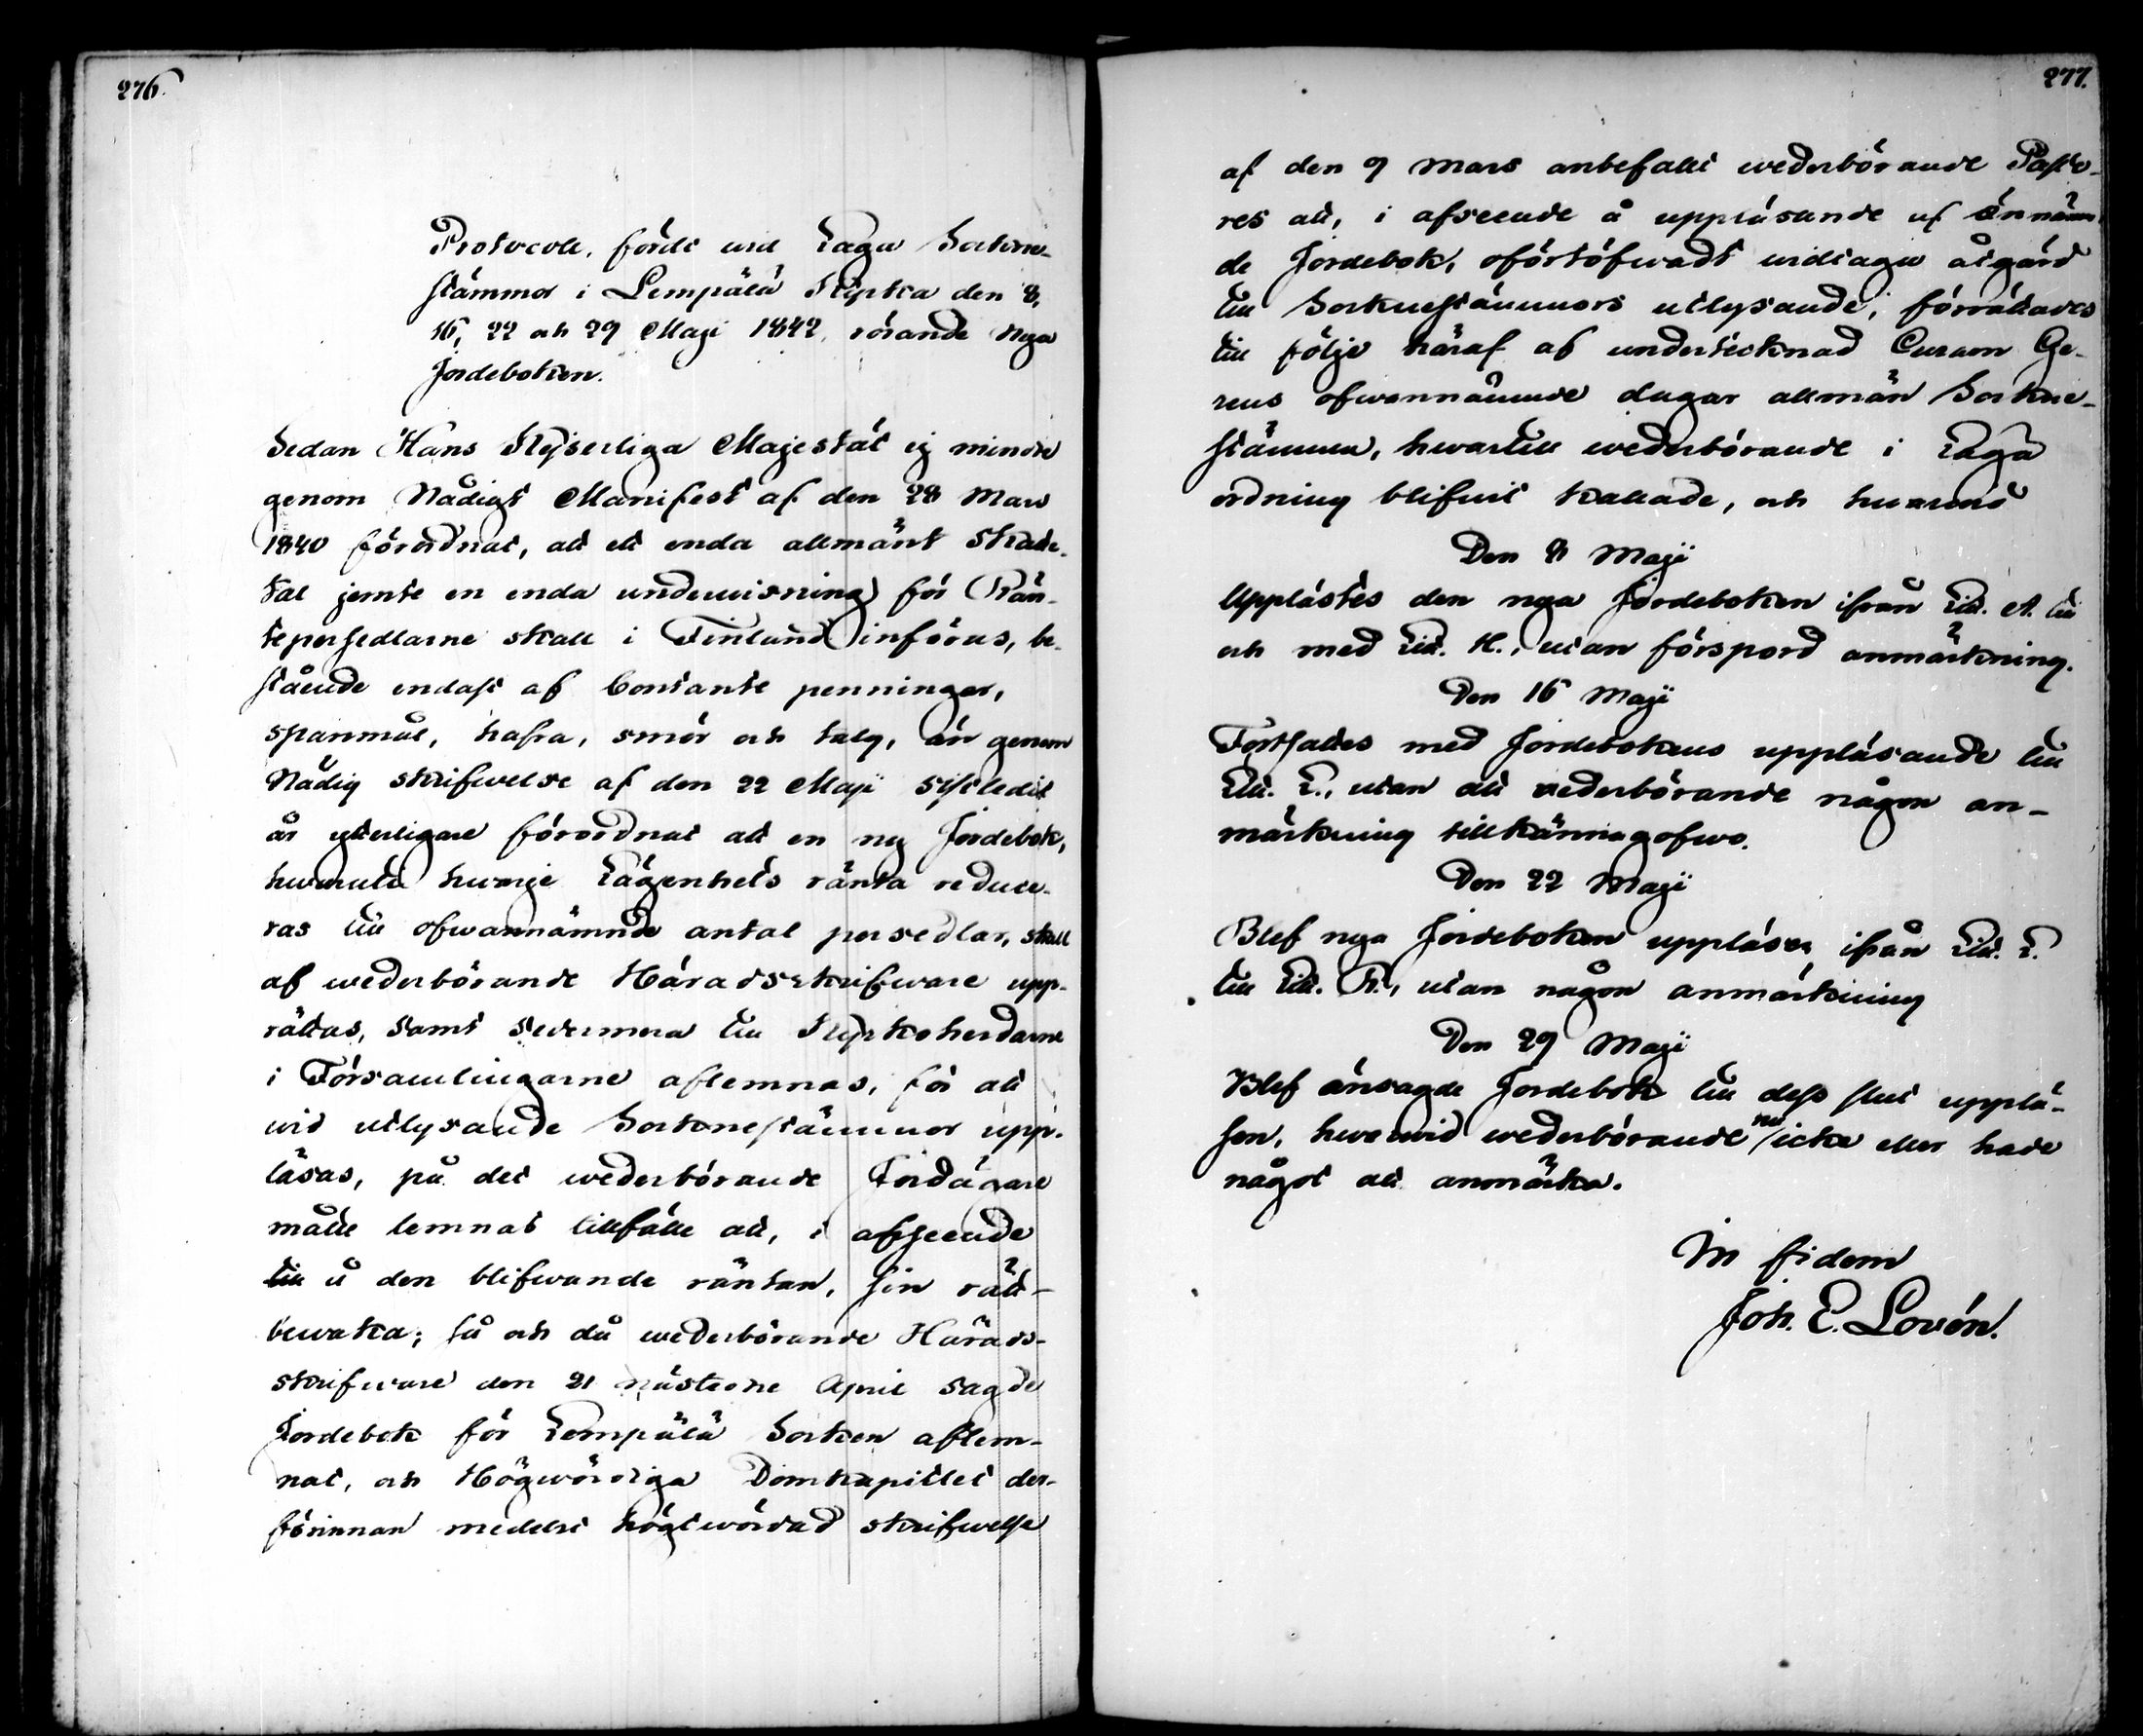 276.
Protocoll, fördt wid Laga Sockne-
stämmor i Lempälä Kyrka den 8,
16, 22 och 29 Maji 1842, rörande Nya
Jordeboken.
Sedan Hans Kejserliga Majestät ej mindre
genom Nådigt Manifest af den 28 Mars
1840 förordnat, att ett enda allmänt Skatte-
tal jemte en enda underwisning för Rän-
tepersedlarne skall i Finland införas, be-
stående endast af Contante penningar,
spanmål, hafra, smör och talg, än genom
Nådig skrifwelse af den 22 Maji sistledit
år ytterligare förordnat att en ny Jordebok,
hwaruti hwarje Lägenhets ränta reduce-
ras till ofwannämnde antal persedlar, skall
af wederbörande Häradsskrifware upp-
rättas, samt sedermera till Kyrkoherdarne
i Församlingarne aflemnas, för att
wid utlysande Socknestämmor upp-
läsas, på det wederbörande Jordägare
måtte lemnas tillfälle att, i afseende
till å den blifwande räntan, sin rätt
bewaka; så och då wederbörande Härads-
skrifware den 21 nästledne April sagde
Jordebok för Lempälä Socken aflem-
nat, och Högwördiga Domkapitlet der-
förinnan medelst högtwördad skrifwelse
277.
af den 9 Mars anbefallt wederbörande Pasto-
res att, i afseende å uppläsande af ännämn-
de Jordebok, oförtöfwadt widtaga åtgärd
till Socknestämmors utlysande; förrättades
till följe häraf af undertecknad Curam Ge-
rens ofwannämnde dagar allmän Sockne-
stämma, hwartill wederbörande i Laga
ordning blifwit kallade, och hwarwid
Den 8 Maji
Upplästes den nya Jordeboken ifrån Litt. A. till
och med Litt. H., utan förspord anmärkning.
Den 16 Maji
Fortsattes med Jordebokens uppläsande till
Litt. L., utan att wederbörande någon an-
märkning tillkännagofwo.
Den 22 Maji
Blef nya Jordeboken uppläsen ifrån Litt. L.
till Litt. R., utan någon anmärkning
Den 29 Maji
Blef änsagde Jordebok till dess slut upplä-
sen, hwarwid wederbörande nu icke eller hade
något att anmärka.
In fidem
Joh. E. Lovén.